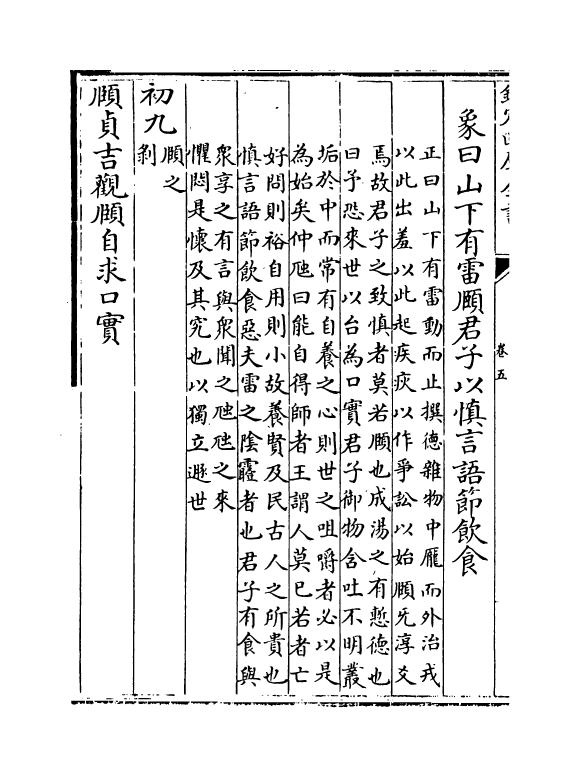 欽定四庫全書
卷五
象曰山下有雷頤君子以慎言語節飲食
正曰山下有雷動而止撰徳雜物中而外治戎
以此出羞以此起疾疢以作爭訟以始頤旡淳爻
焉故君子之致慎者莫若頤也成湯之有慙德也
曰予恐來世以台為口實君子御物含吐不明叢
垢於中而常有自養之心則世之咀嚼者必以是
為始矣仲虺曰能自得師者王謂人莫已若者亡
好問則裕自用則小故養賢及民古人之所貴也
慎言語節飲食惡夫雷之陰者也君子有食與
衆享之有言與衆聞之虺虺之來
懼悶是懷及其究也以獨立遯世
初九
頤之
剝
頤貞吉觀頤自求口實